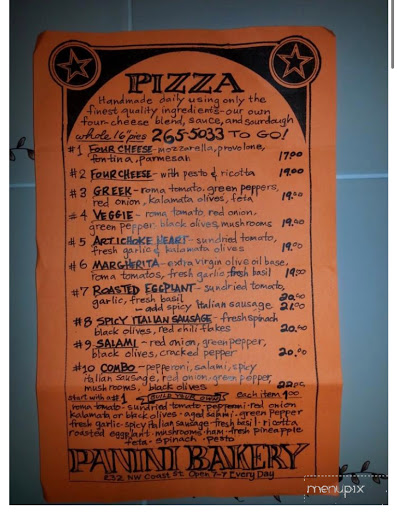 PIZZA
Handmade daily using only the
finest quality ingredients-our own
four-cheese blend, sauce, and sourdough
whole 16" pies 265-5033 TO GO!
#1 FOUR CHEESE-mozzarella, provolone,
fontina, parmesan 17.00
#2 FOUR CHEESE-with pesto & ricotta 19.00
#3 GREEK-roma tomato, green peppers,
red onion, kalamata olives, feta 19.00
#4 VEGGIE-roma tomato, red onion,
green pepper, black olives, mushrooms 19.00
#5 ARTICHOKE HEART-sundried tomato,
fresh garlic & kalamata olives 19.00
#6 MARGHERITA-extra virgin olive oil base,
roma tomatoes, fresh garlic, fresh basil 19.00
#7 ROASTED EGGPLANT-sundried tomato,
garlic, fresh basil 20.00
-add spicy Italian sausage 21.00
#8 SPICY ITALIAN SAUSAGE-fresh spinach
black olives, red chili flakes 20.00
#9 SALAMI-red onion, green pepper,
black olives, cracked pepper 20.00
#10 COMBO-pepperoni, salami, spicy
italian sausage, red onion, green pepper,
mushrooms, black olives 22.00
start with a #1 BUILD YOUR OWN each item 1.00
roma tomato-sundried tomato-pepperoni-red onion
kalamata or black olives-aged salami-green pepper
fresh garlic-spicy italian sausage-fresh basil-ricotta
roasted eggplant-mushrooms-ham-fresh pineapple
feta-spinach-pesto
PANINI BAKERY
232 NW Coast St. Open 7-7 Every Day
menupix